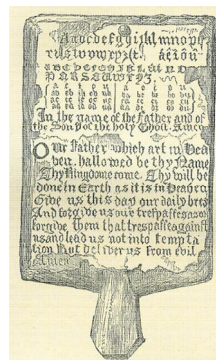 Aabcdefghijklmnopq
rſstuvwxyz& aeiou
ABCDEFGHIJKLMNOP
QRSTUVWXYZ
a e i o u a e i o u
ab eb ib ob ub ba be bi bo bu
ac ec ic oc uc ca ce ci co cu
ad ed id od ud da de di do du
In the name of the Father and of
the Son & of the holy Ghost. Amen
Our Father which art in Hea
ven, hallowed be thy Name
Thy Kingdome come, Thy will be
done in Earth as it is in Heaven
Give us this day our daily bread
And forgive us our treſpaſſes as we
forgive them that treſpaſſe againſt
us and lead us not into tempta
tion But deliver us from evil
Amen